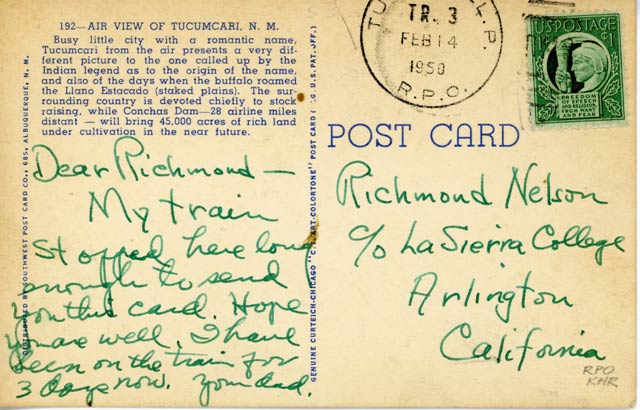 192—AIR VIEW OF TUCUMCARI, N. M.
Busy little city with a romantic name,
Tucumcari from the air presents a very dif-
ferent picture to the one called up by the
Indian legend as to the origin of the name,
and also of the days when the buffalo roamed
the Llano Estacado (staked plains). The sur-
rounding country is devoted chiefly to stock
raising, while Conchas Dam—28 airline miles
distant — will bring 45,000 acres of rich land
under cultivation in the near future.
Dear Richmond —
My train
stopped here long
enough to send
you this card. Hope
you are well. I have
been on the train for
3 days now. Your dad.
DISTRIBUTED BY SOUTHWEST POST CARD CO., 685, ALBUQUERQUE, N. M.
GENUINE CURTEICH-CHICAGO "C.T. ART-COLORTONE" POST CARD (REG. U.S. PAT. OFF.)
TR. 3
FEB 14
1950
R.P.O.
U.S. POSTAGE
1¢ 1¢
FREEDOM
OF SPEECH
AND RELIGION,
FROM WANT
AND FEAR
POST CARD
Richmond Nelson
c/o La Sierra College
Arlington
California
RPO
KHR